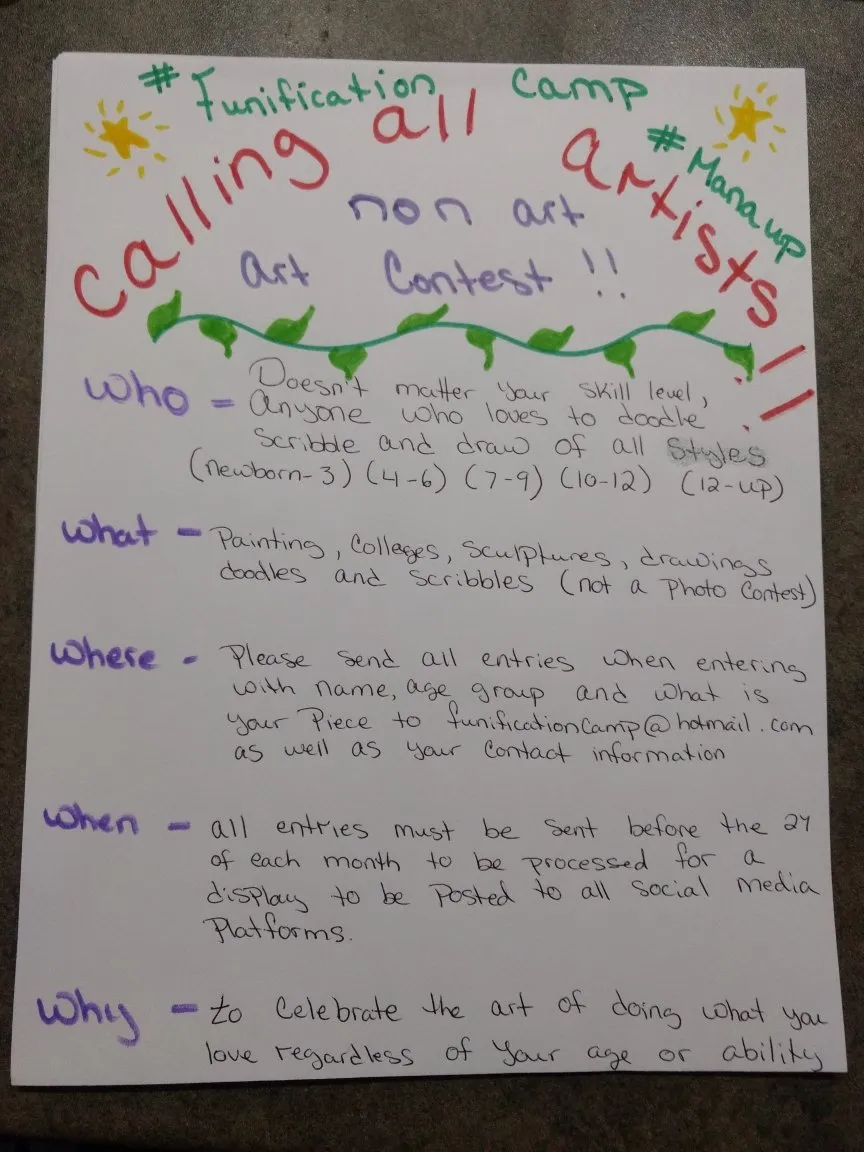 # Funification Camp
Calling all artists!!
# Mana up
non art
art Contest !!
who = Doesn't matter your skill level,
anyone who loves to doodle
scribble and draw of all styles
(newborn-3) (4-6) (7-9) (10-12) (12-up)
what - Painting, Colleges, sculptures, drawings
doodles and scribbles (not a photo contest)
where - Please send all entries when entering
with name, age group and what is
your Piece to funificationcamp@hotmail.com
as well as your contact information
when - all entries must be sent before the 24
of each month to be processed for a
display to be Posted to all social media
Platforms.
why - to celebrate the art of doing what you
love regardless of your age or ability